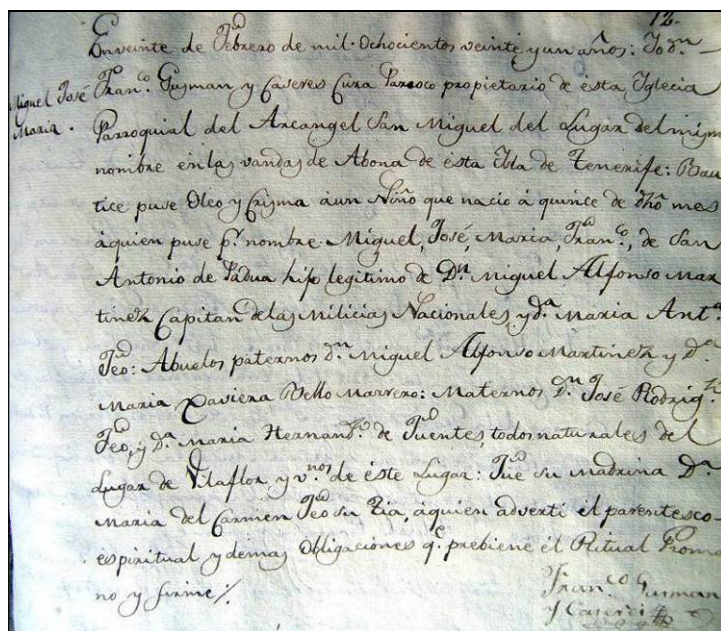 12-
En veinte de Febrero de mil ochocientos veinte y un años: Yo dn
Miguel José
Maria.
Franco. Guzman y Caseres Cura Parroco propietario de esta Iglecia
Parroquial del Arcangel San Miguel del Lugar del mism
nombre en las vandas de Abona de esta Isla de Tenerife: Bau
tice puse Oleo y Crisma á un Niño que nacio á quince de dho mes
á quien puse pr. nombre Miguel, José, Maria, Franco., de San
Antonio de Padua hijo legitimo de Dn Miguel Alfonso Mar
tinez Capitan de las Milicias Nacionales y da. Maria Anta.
Feo: Abuelos paternos dn. Miguel Alfonso Martinez y da.
Maria Xaviera Bello Marrero: Maternos Dn. José Rodrigz.
Feo, y da. Maria Hernandz. de Fuentes, todos naturales del
Lugar de Vilaflor y vnos. de éste Lugar: Fue su Madrina Da.
Maria del Carmen Feo su Tia, á quien adverti el parentesco
espiritual y demas Obligaciones qe. prebiene el Ritual Roma
no y firmé
Franco. Gusman
y Caseres